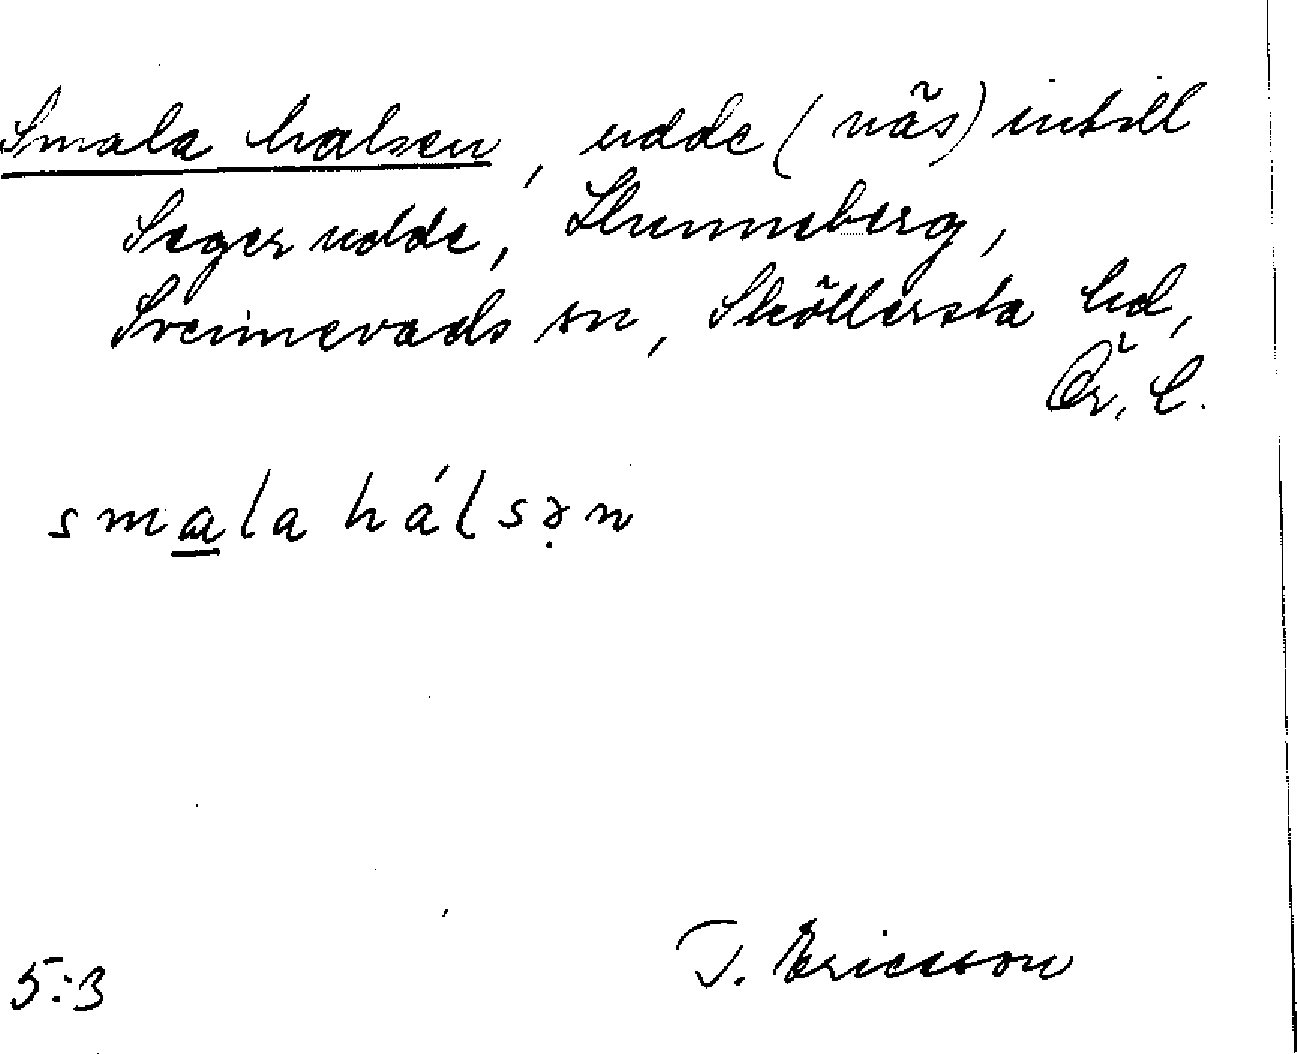 Smala halsen, udde (näs) intill
Segerudde, Skenneberg,
Svennevads sn, Sköllersta hd,
Ör. l.
smala hálsən
T. Ericsson
5:3